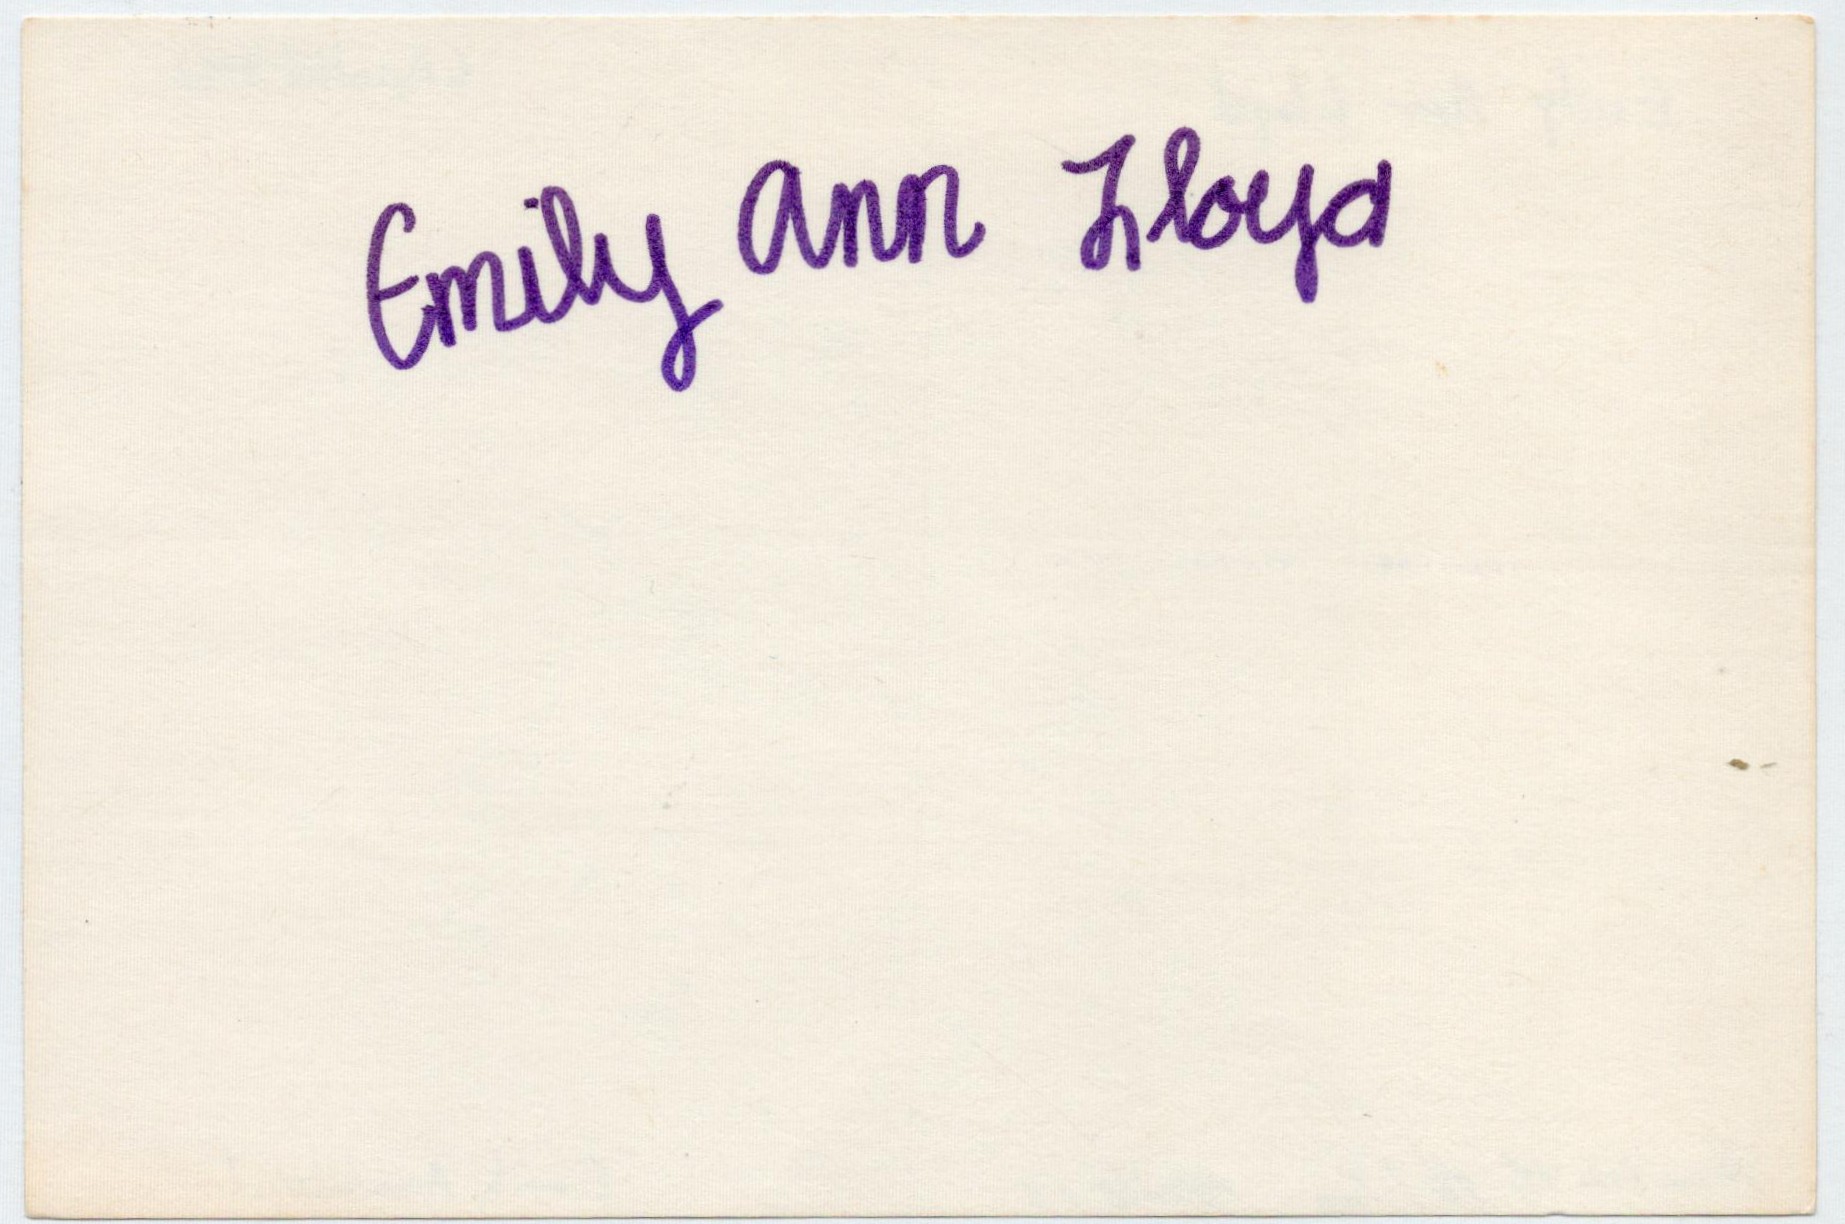 Emily Ann Lloyd